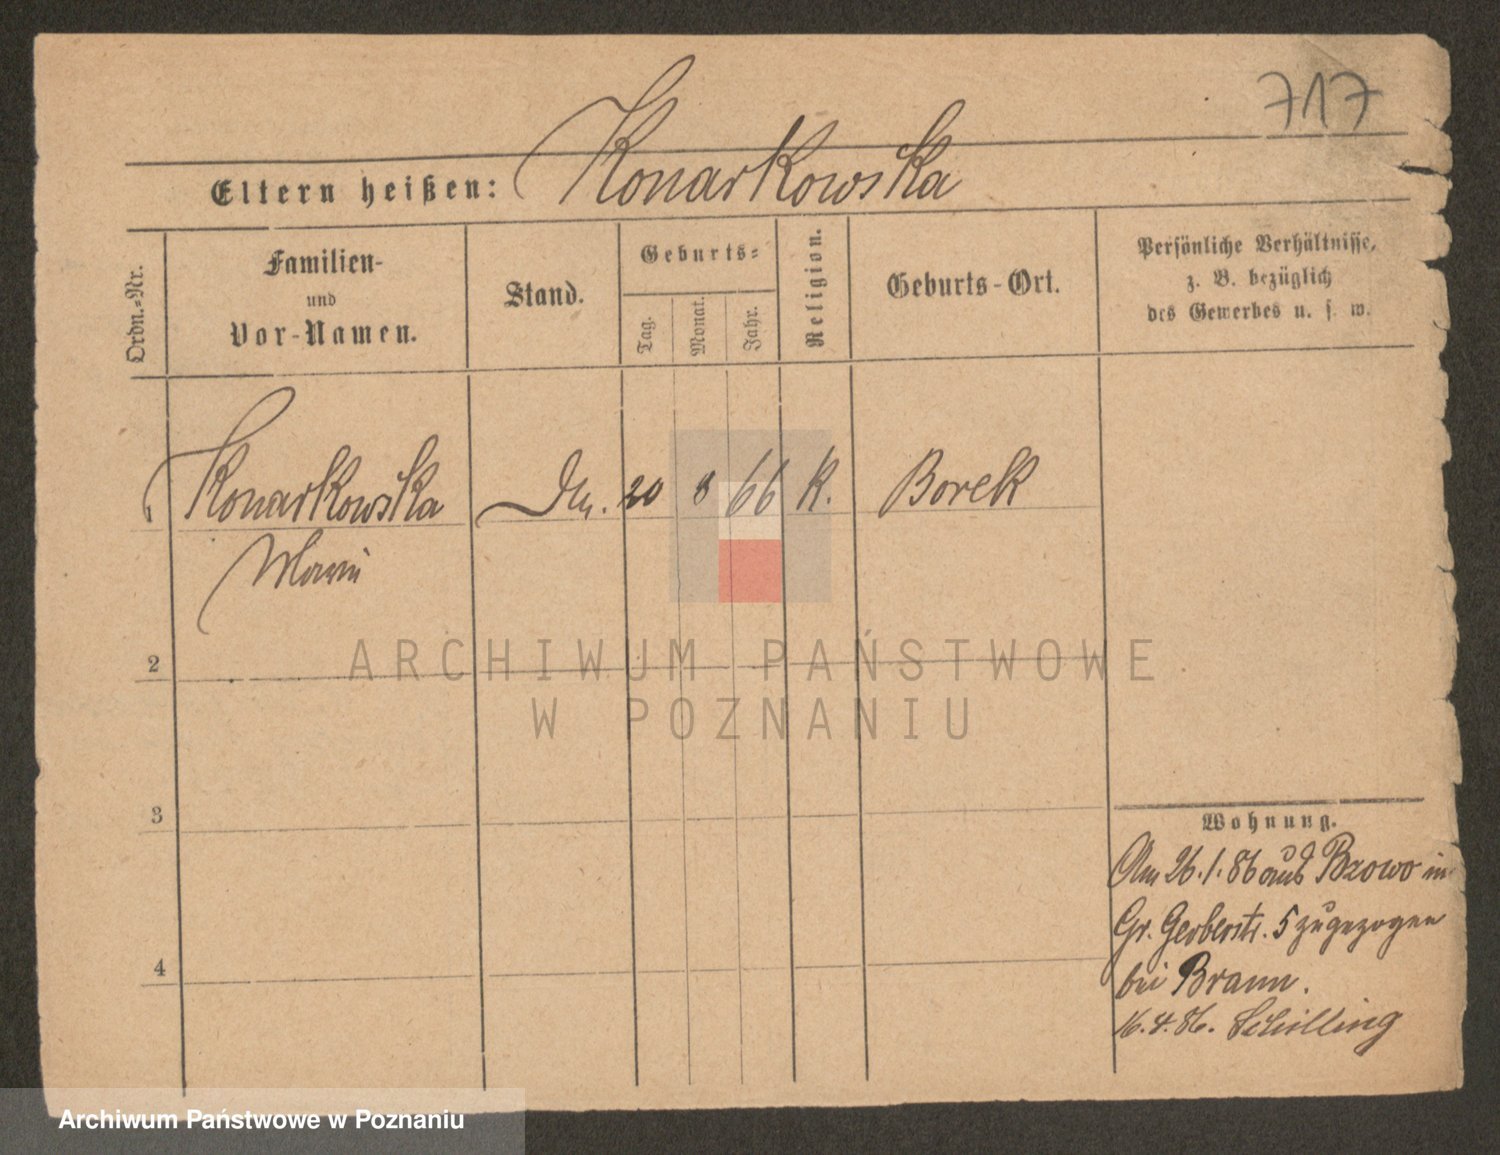 717
Eltern heißen: Konarkowska
Ordn.=Nr.
Familien-
und
Vor-Namen.
Stand.
Geburts=
Tag.
Monat.
Jahr.
Religion.
Geburts-Ort.
Persönliche Verhältnisse,
z. B. bezüglich
des Gewerbes u. s. w.
1 Konarkowska 20 8 66 K. Borek
Marie
2
3
4
Wohnung.
Am 26.1.86 aus Brzowo in
Gr. Gerberstr. 5 zugezogen
bei Braun.
16.4.86. Schilling
ARCHIWUM PAŃSTWOWE
W POZNANIU
Archiwum Państwowe w Poznaniu